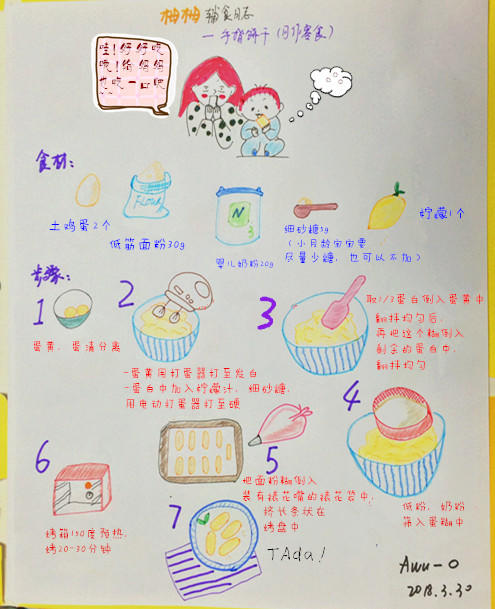 柚柚辅食日志
—手指饼干(日常零食)
哇!好好吃
哦!给妈妈
也吃一口吧
食材:
FLOUR
N
3
土鸡蛋2个
低筋面粉30g
婴儿奶粉20g
细砂糖5g
(小月龄宝宝要
尽量少糖,也可以不加)
柠檬1个
步骤:
1
蛋黄、蛋清分离
2
-蛋黄用打蛋器打至发白
-蛋白中加入柠檬汁、细砂糖,
用电动打蛋器打至硬
3
取1/3蛋白倒入蛋黄中
翻拌均匀后,
再把这个糊倒入
剩余的蛋白中,
翻拌均匀
4
低粉、奶粉
筛入蛋糊中
5
把面粉糊倒入
装有裱花嘴的裱花袋中,
挤长条状在
烤盘中
6
烤箱150度预热,
烤20-30分钟
7
TAda!
Awu-O
2018.3.30